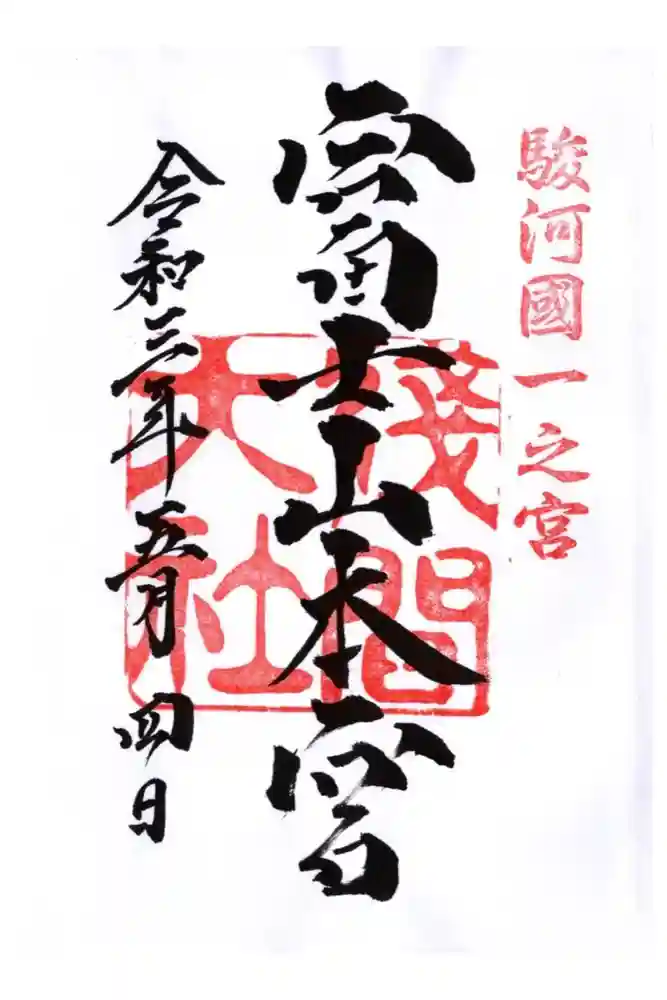 駿河國一之宮
富士山本宮
淺間
大社
令和三年五月四日